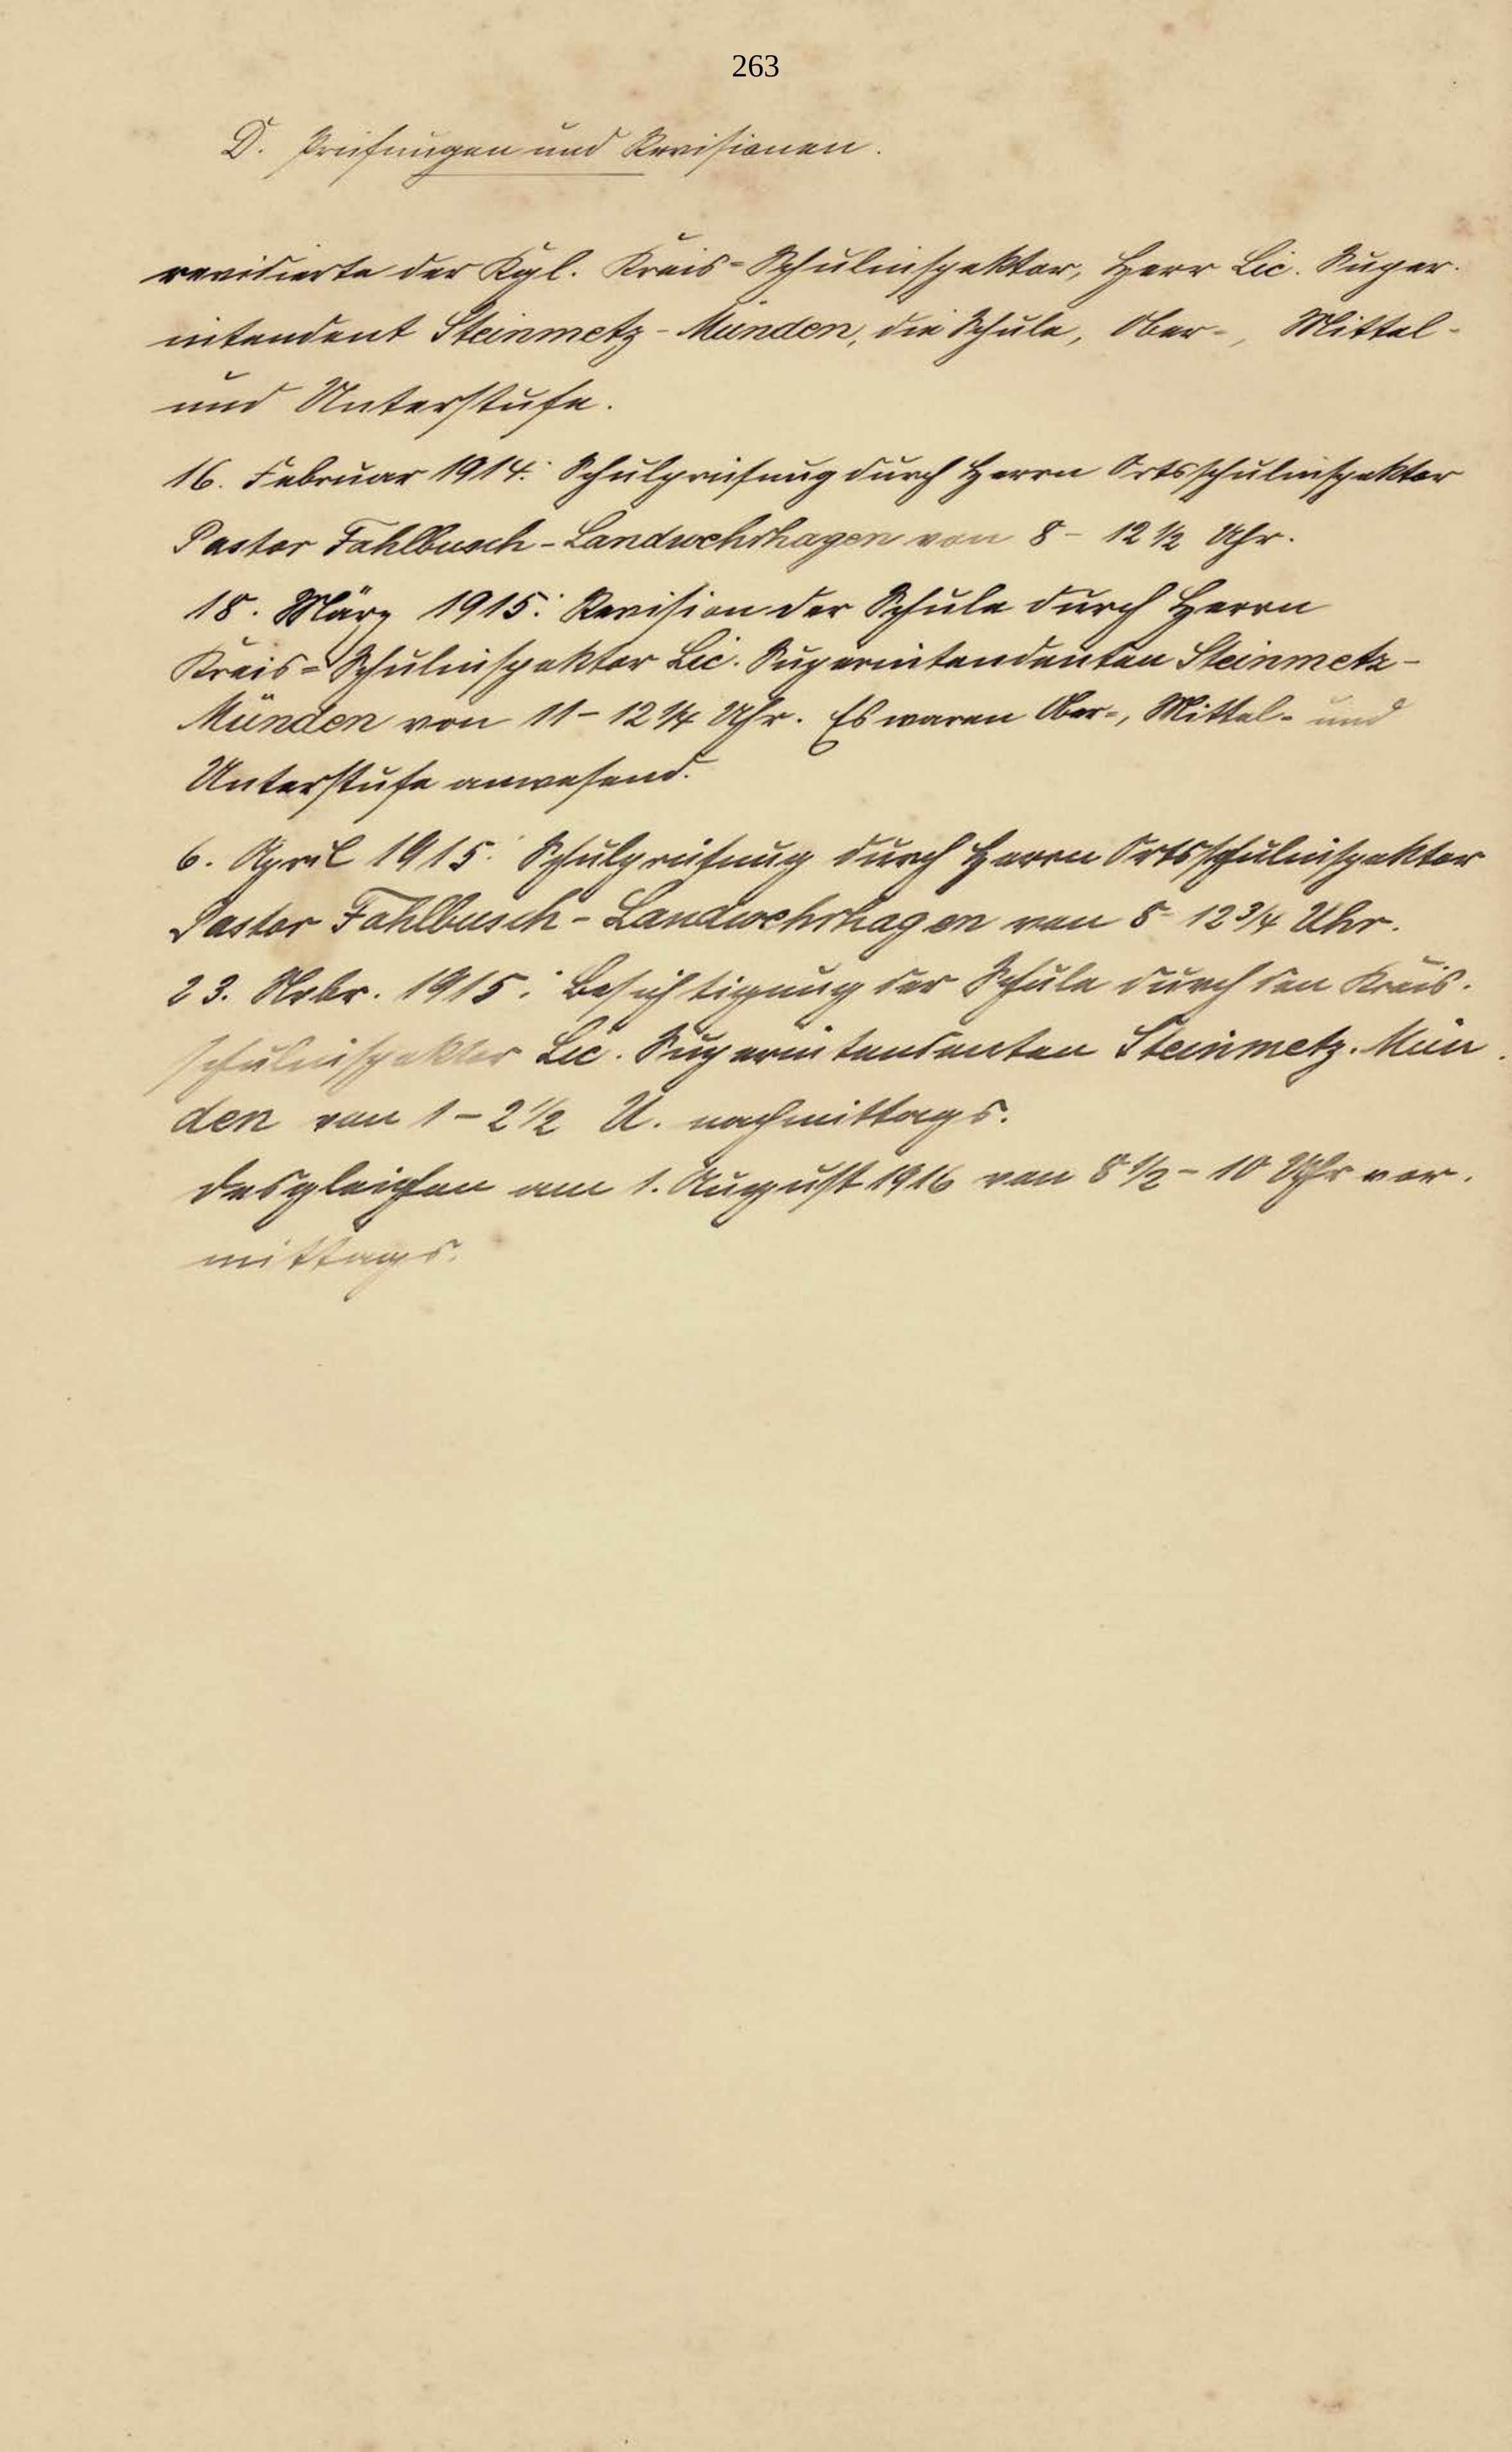 263
D. Prüfungen und Revisionen.
revidierte der Kgl. Kreis-Schulinspektor, Herr Lic. Super-
intendent Steinmetz-Münden, die Schule, Ober-, Mittel-
und Unterstufe.
16. Februar 1914: Schulprüfung durch Herrn Ortsschulinspektor
Pastor Fahlbusch-Landwehrhagen von 8 - 12 1/2 Uhr.
18. März 1915: Revision der Schule durch Herrn
Kreis-Schulinspektor Lic. Superintendenten Steinmetz-
Münden von 11 - 12 1/4 Uhr. Es waren Ober-, Mittel- und
Unterstufe anwesend.
6. April 1915: Schulprüfung durch Herrn Ortsschulinspektor
Pastor Fahlbusch-Landwehrhagen von 8 - 12 3/4 Uhr.
23. Nvbr. 1915: Besichtigung der Schule durch den Kreis-
schulinspektor Lic. Superintendenten Steinmetz-Mün-
den von 1 - 2 1/2 U. nachmittags.
desgleichen am 1. August 1916 von 8 1/2 - 10 Uhr vor-
mittags.